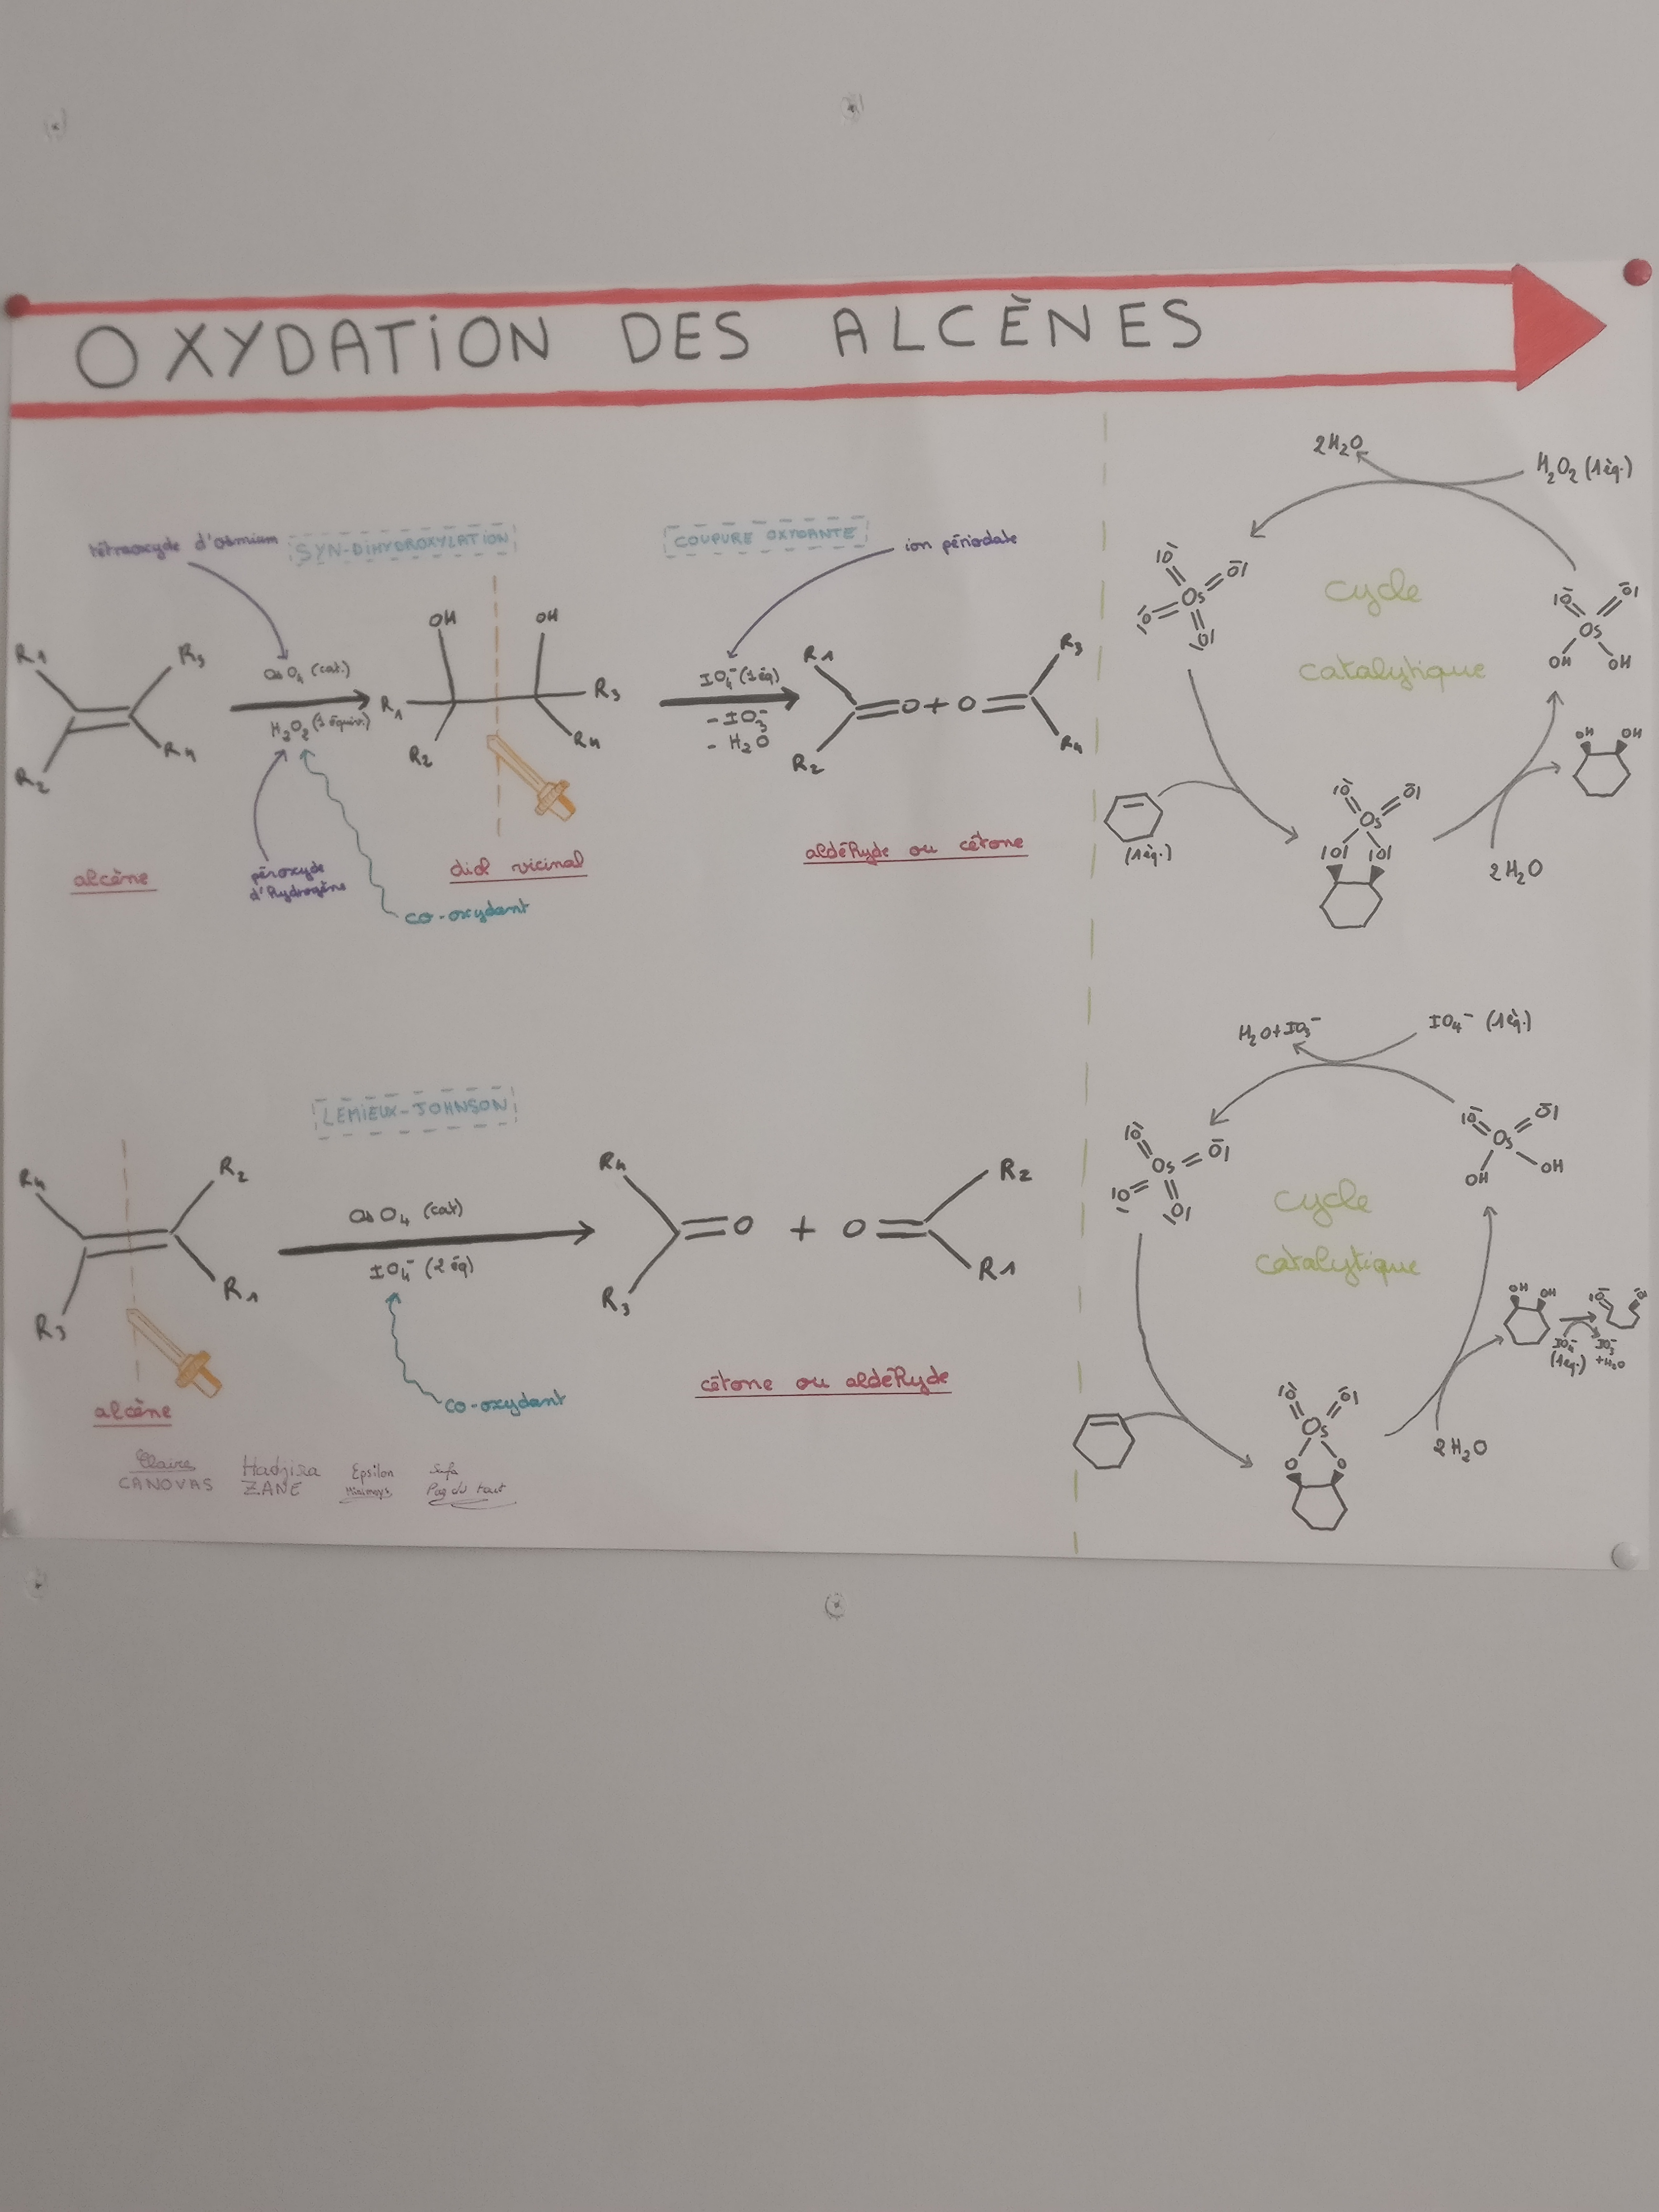 OXYDATION DES ALCÈNES
tétraoxyde d'osmium
SYN-DIHYDROXYLATION
COUPURE OXYDANTE
ion périodate
R1
R3
R2
R4
OsO4 (cat.)
H2O2 (1 équiv.)
OH
OH
R1
R2
R3
R4
IO4- (1 éq)
- IO3-
- H2O
R1
R2
O + O
R3
R4
alcène
péroxyde
d'hydrogène
co-oxydant
diol vicinal
aldéhyde ou cétone
2H2O
H2O2 (1 éq.)
cycle
catalytique
Os
Os
OH
OH
OH
OH
(1 éq.)
Os
2H2O
LEMIEUX-JOHNSON
R4
R2
R3
R1
OsO4 (cat)
IO4- (2 éq)
R4
R3
O + O
R2
R1
alcène
co-oxydant
cétone ou aldéhyde
H2O + IO3-
IO4- (1 éq.)
cycle
catalytique
Os
Os
OH
OH
OH
OH
IO4-
(1 éq.)
IO3-
+ H2O
Os
O
O
2H2O
Claire
CANOVAS
Hadjira
ZANE
Epsilon
Minimoys
Pag du tout